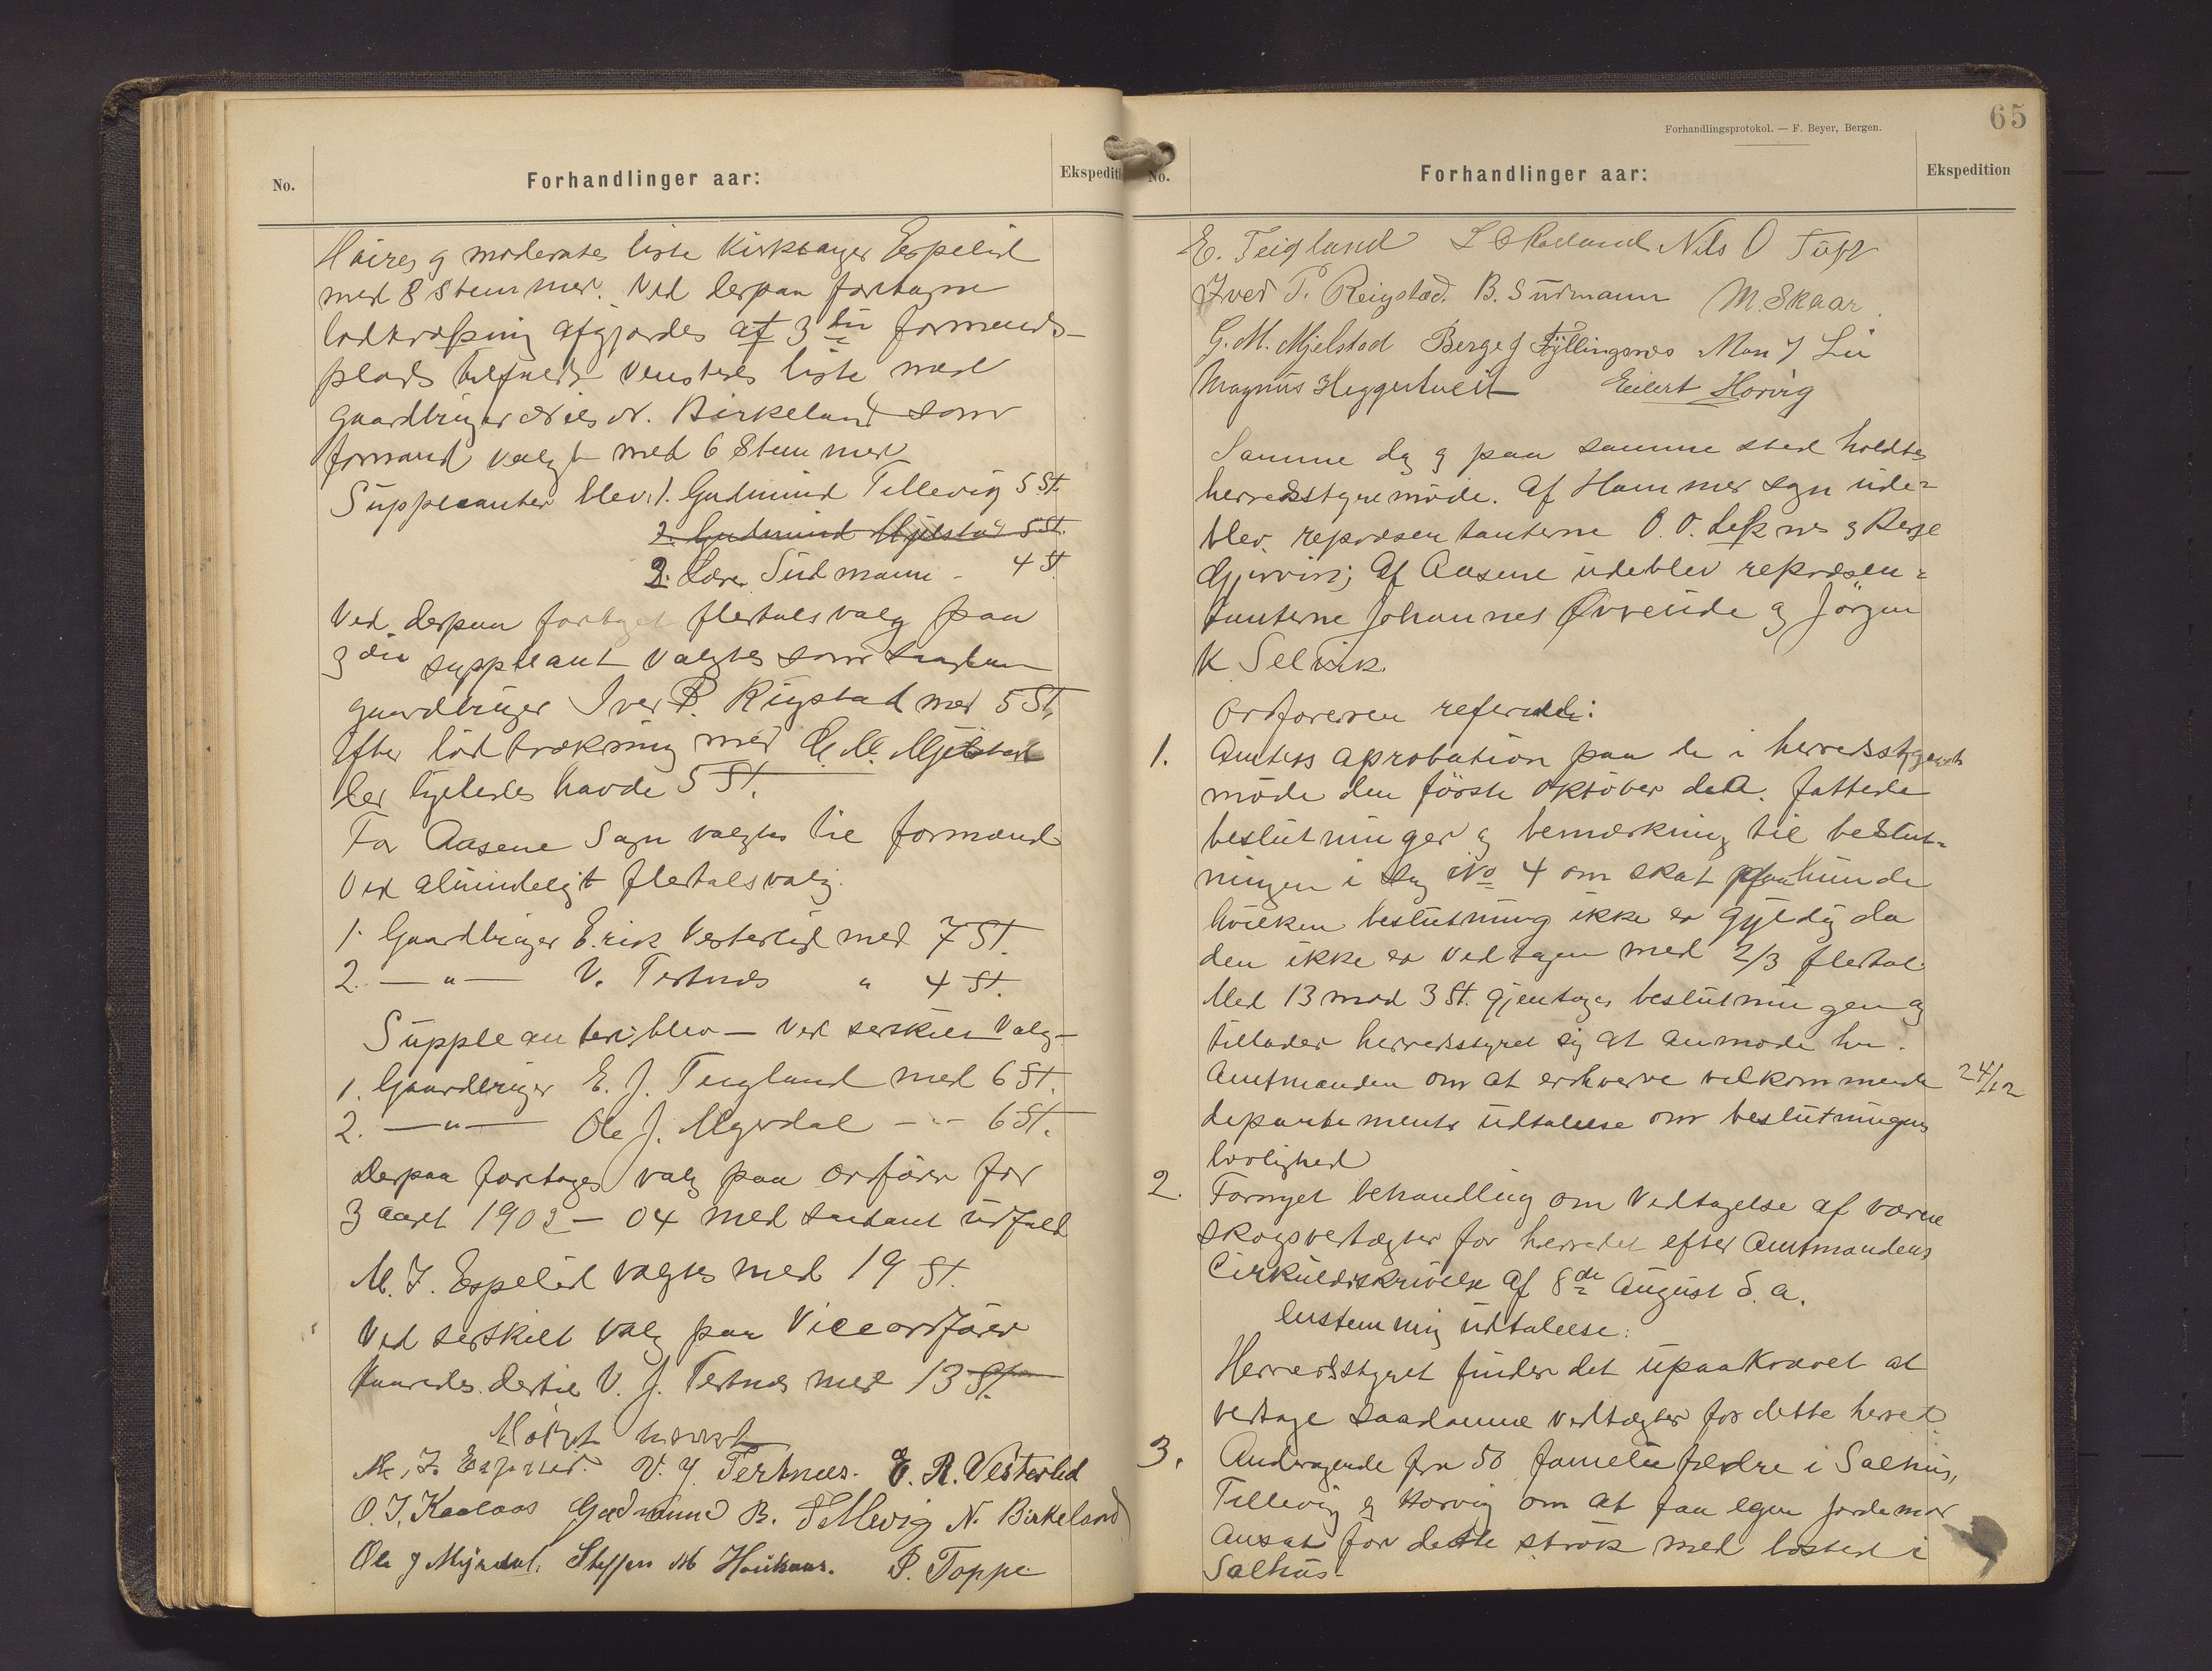 No.
Forhandlinger aar:
Ekspediti
Høires og moderates liste Kirksanger Espelid
med 8 Stemmer. Ved derpaa foretagen
lodtrækning afgjordes at 3die formands-
plads tilfaldt Venstres liste med
gaardbruger Nils N. Birkeland som
formand valgt med 6 Stemmer
Suppleanter blev: 1. Gudmund Tellevig 5 St.
2. Gudmund Mjelstad 5 St.
2. Lærer Sudmann - 4 St.
Ved derpaa fortaget flertalsvalg paa
3die suppleant valgtes som saadan
gaardbruger Iver P. Reigstad med 5 St.
efter lodtrækning med G. M. Mjelstad
der ligeledes havde 5 St.
For Aasene Sogn valgtes til formænd
Ved almindeligt flertalsvalg.
1. Gaardbruger Erik Vesterlid med 7 St.
2. — " — V. Tertnæs " 4 St.
Suppleanter blev — ved serskilt Valg —
1. Gaardbruger E. J. Teigland med 6 St.
2. — " — Ole J. Myrdal - " - 6 St.
Derpaa foretages valg paa ordfører for
3 aaret 1902 — 04 med saadant udfald
M. J. Espelid valgtes med 19 St.
Ved serskilt valg paa Viceordfører
kaaredes dertil V. J. Tertnæs med 13 St.
Mødet hævet
M. J. Espelid. V. J. Tertnæs. E. R. Vesterlid
O. J. Kaalaas Gudmund B. Tellevig N. Birkeland
Ole J Myrdal. Steffen M Haukaas. P. Toppe
65
Forhandlingsprotokol. — F. Beyer, Bergen.
No.
Forhandlinger aar:
Ekspedition
E. Teigland L O Rødland Nils O
Iver P. Reigstad. B. Sudmann M. Skaar.
G. M. Mjelstad Berge J Fyllingsnes Mons J Lie
Magnus Heggertveit Eilert Horvig
Samme dag og paa samme sted holdtes
herredsstyremøde. Af Hammer sogn ude-
blev repræsentanterne O. O. og Berge
Gjervin; Af Aasene udeblev repræsen-
tanterne Johannes Øvreeide og Jørgen
K. Selvik.
Ordføreren refererede:
1. Amtets aprobation paa de i herredsstyrets
møde den første Oktober d.A. fattede
beslutninger og bemærkning til beslut-
ningen i sag No 4 om skat paa hunde
hvilken beslutning ikke er gyldig da
den ikke er vedtagen med 2/3 flertal.
Med 13 mod 3 St. gjentoges beslutningen og
tillader herredsstyret sig at anmode hr.
Amtmanden om at erhverve velkommende
24/12
departements udtalelse om beslutningens
lovlighed
2. Fornyet behandling om Vedtagelse af værne
skogsvedtægter for herredet efter Amtmandens
Cirkulærskrivelse af 8de August d. a.
Enstemmig udtalelse:
Herredsstyret finder det upaakrævet at
vedtage saadanne vedtægter for dette herred
3. Andragende fra 50 familiefædre i Salhus,
Tellevig og Horvig om at faa egen jordemor
ansat for dette strøk med bosted i
Salhus.